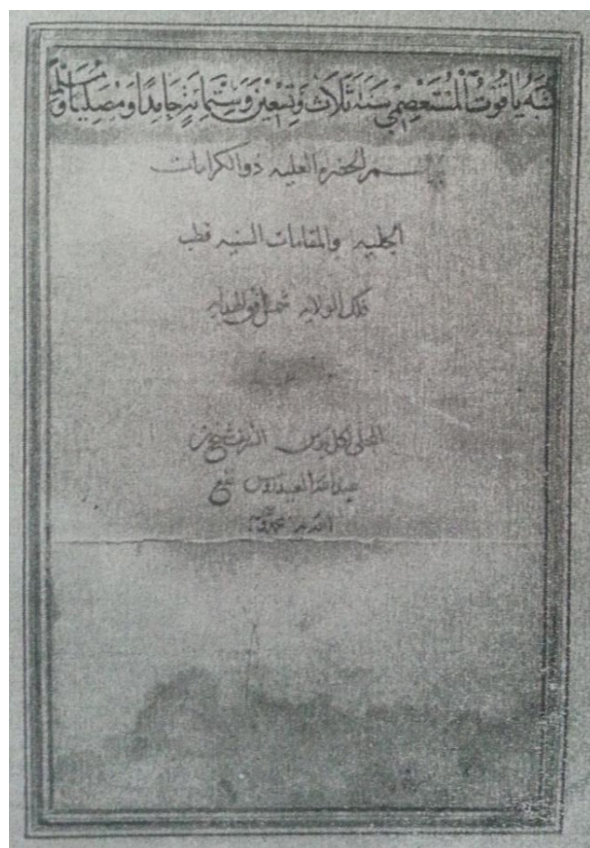 كتبه ياقوت المستعصمي سنة ثلاث وتسعين وستمائة حامدًا ومصليًا ومسلمًا
برسم الحضره العليه ذو الكرامات
الجليه والمقامات السنيه قطب
فلك الولايه شمس أفق الهدايه
شيخ بن
عبدالله العيدروس نفع
الله به